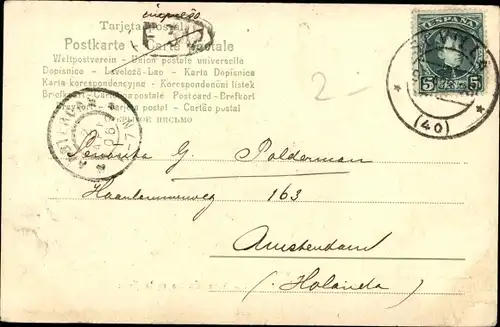 Tarjeta Postal
impreso
Postkarte - Carte postale
Weltpostverein - Union postale universelle
Dopisnice - Levelező-Lap - Karta Dopisnica
Karta korespondencyjna - Korespondenční lístek
Brefkort - Carte postale - Postcard - Brefkort
Tarjeta postal - Cartão postal
ПИСЬМО
ESPAÑA
5 5
SEVILLA
(40)
2-
Señorita G. Polderman
Haarlemmerweg 163
Amsterdam
(Holanda)